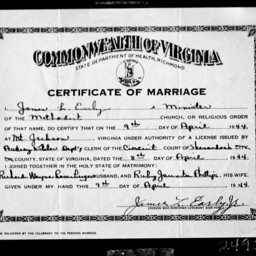 COMMONWEALTH OF VIRGINIA
STATE DEPARTMENT OF HEALTH, RICHMOND
CERTIFICATE OF MARRIAGE
I, James L. Early A Minister
OF THE Methodist CHURCH, OR RELIGIOUS ORDER
OF THAT NAME, DO CERTIFY THAT ON THE 9th DAY OF April 1944
AT Mt. Jackson VIRGINIA UNDER AUTHORITY OF A LICENSE ISSUED
BY CLERK OF THE Circuit COURT OF Shenandoah
COUNTY, STATE OF VIRGINIA, DATED THE 8th DAY OF April 1944
I JOINED IN THE HOLY STATE OF MATRIMONY:
Richard Wayne HUSBAND, AND Ruby Juanita Phillips, HIS WIFE.
GIVEN UNDER MY HAND THIS 9th DAY OF April 1944
James L. Early Jr.
BE DELIVERED BY THE CELEBRANT TO THE PERSONS MARRIED
249